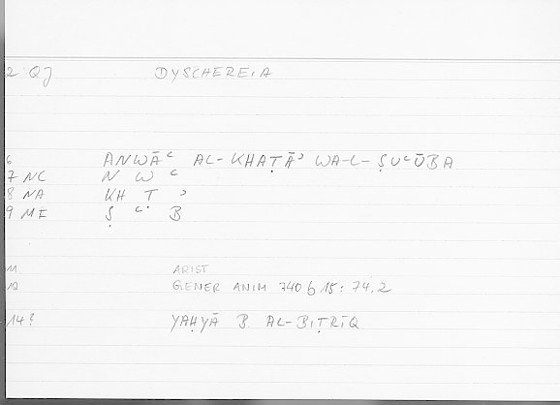 2 QJ DYSCHEREIA
6 ANWĀʿ AL-KHAṬĀʾ WA-L-ṢUʿŪBA
7 NC N W ʿ
8 NA KH Ṭ ʾ
9 MF Ṣ ʿ B
M ARIST
GENER ANIM 740 b 15: 74.2
14: YAḤYĀ B. AL-BIṬRĪQ